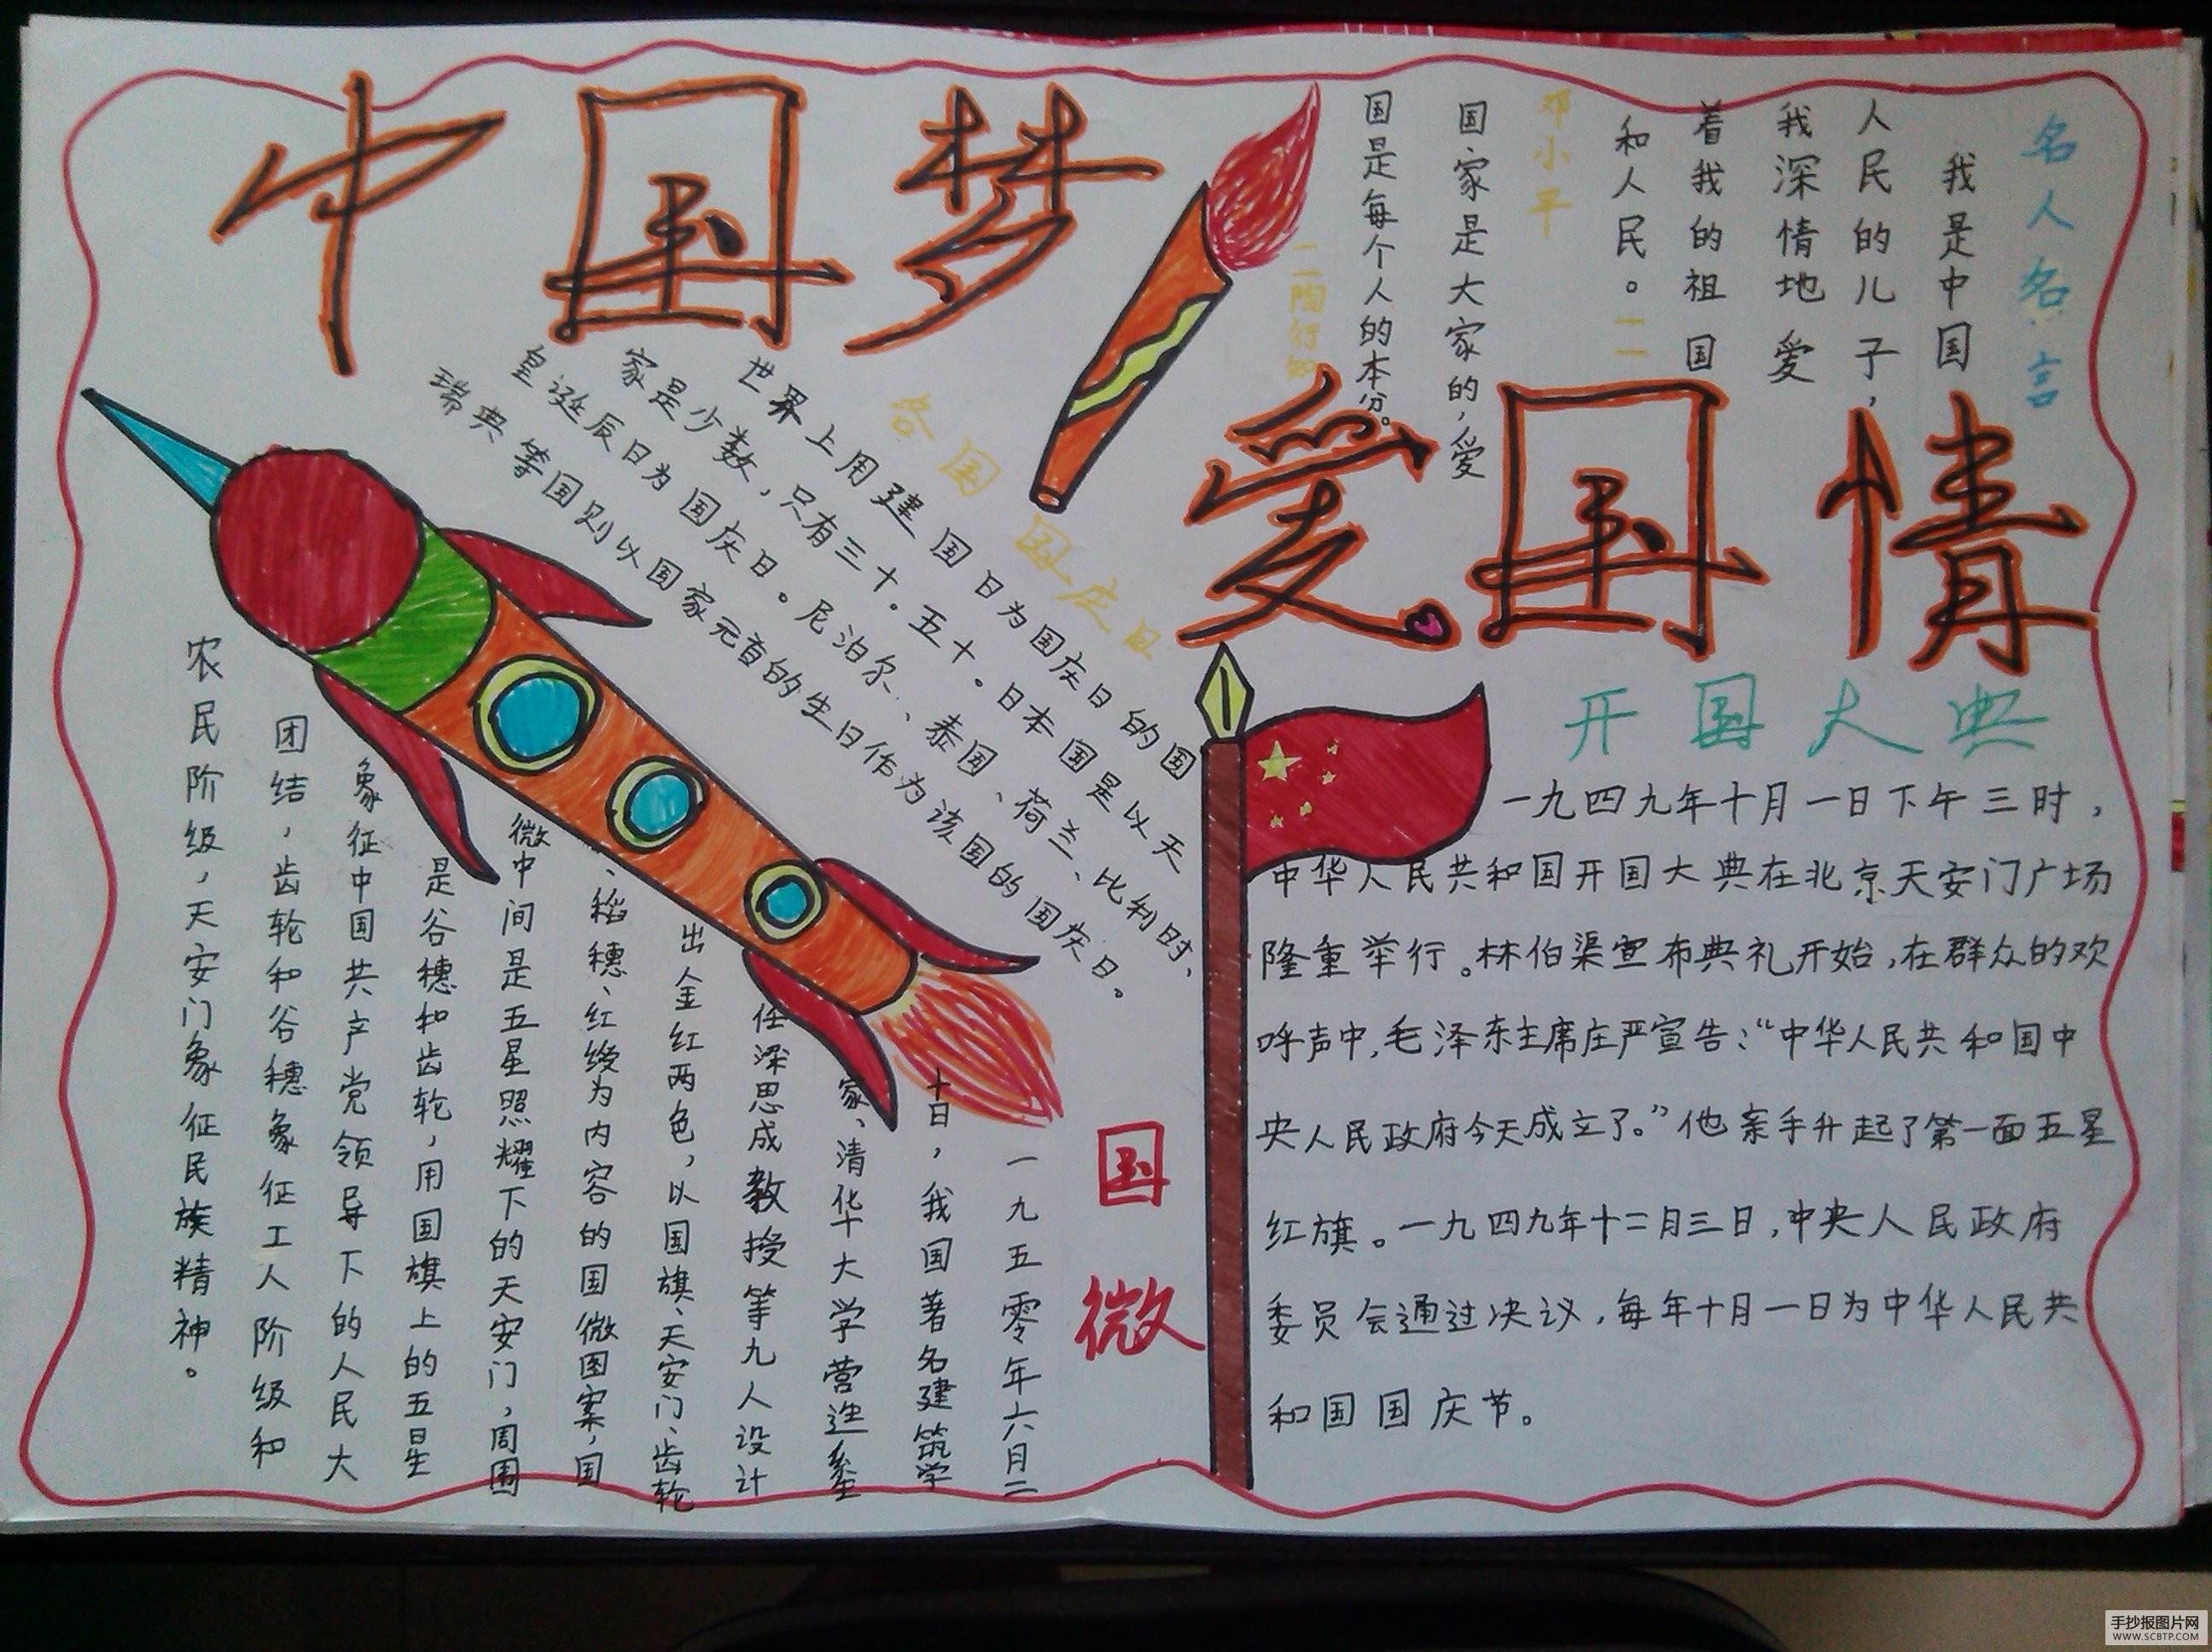 中国梦
爱国情
名人名言
我是中国
人民的儿子，
我深情地爱
着我的祖国
和人民。——
邓小平
国家是大家的，爱
国是每个人的本分。
——陶行知
各国国庆日
世界上用建国日为国庆日的国
家是少数，只有三十。五十。日本国是以天
皇诞辰日为国庆日。尼泊尔、泰国、荷兰、比利时、
瑞典等国则以国家元首的生日作为该国的国庆日。
开国大典
一九四九年十月一日下午三时，
中华人民共和国开国大典在北京天安门广场
隆重举行。林伯渠宣布典礼开始，在群众的欢
呼声中，毛泽东主席庄严宣告：“中华人民共和国中
央人民政府今天成立了。”他亲手升起了第一面五星
红旗。一九四九年十二月三日，中央人民政府
委员会通过决议，每年十月一日为中华人民共
和国国庆节。
国微
一九五零年六月二
十日，我国著名建筑学
家、清华大学营造系
任梁思成教授等九人设计
出金红两色，以国旗、天安门、齿轮
、稻穗、红绶为内容的国微图案，国
微中间是五星照耀下的天安门，周围
是谷穗和齿轮，用国旗上的五星
象征中国共产党领导下的人民大
团结，齿轮和谷穗象征工人阶级和
农民阶级，天安门象征民族精神。
手抄报图片网
WWW.SCBTP.COM